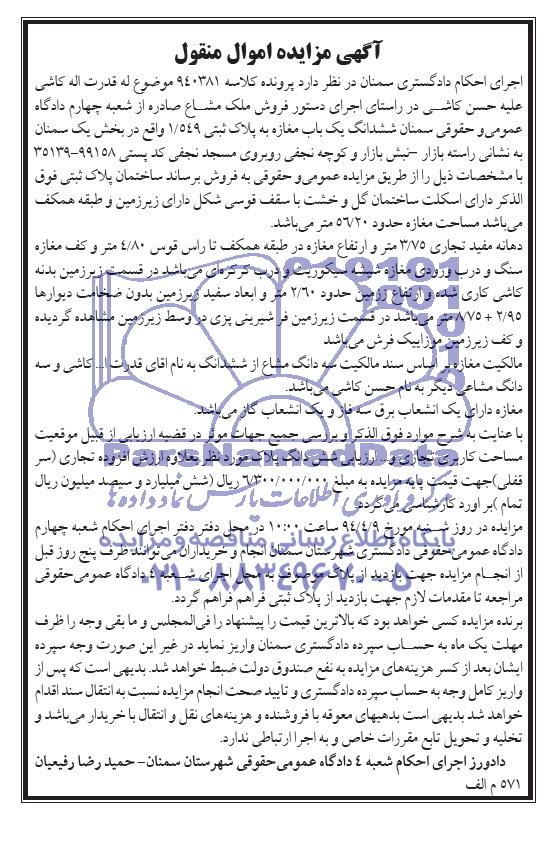 آگهی مزایده اموال منقول
اجرای احکام دادگستری سمنان در نظر دارد پرونده کلاسه ۹۴۰۳۸۱ موضوع له قدرت اله کاشی
علیه حسن کاشی در راستای اجرای دستور فروش ملک مشاع صادره از شعبه چهارم دادگاه
عمومی و حقوقی سمنان ششدانگ یک باب مغازه به پلاک ثبتی ۱/۵۴۹ واقع در بخش یک سمنان
به نشانی راسته بازار –نبش بازار و کوچه نجفی روبروی مسجد نجفی کد پستی ۹۹۱۵۸-۳۵۱۳۹
با مشخصات ذیل را از طریق مزایده عمومی و حقوقی به فروش برساند ساختمان پلاک ثبتی فوق
الذکر دارای اسکلت ساختمان گل و خشت با سقف قوسی شکل دارای زیرزمین و طبقه همکف
می‌باشد مساحت مغازه حدود ۵۶/۲۰ متر می‌باشد.
دهانه مفید تجاری ۳/۷۵ متر و ارتفاع مغازه در طبقه همکف تا راس قوس ۴/۸۰ متر و کف مغازه
سنگ و درب ورودی مغازه شیشه سیکوریت و درب کرکره‌ای می‌باشد در قسمت زیرزمین بدنه
کاشی کاری شده و ارتفاع رزمین حدود ۲/۶۰ متر و ابعاد سفید زیرزمین بدون ضخامت دیوارها
۲/۹۵ + ۸/۷۵ متر می‌باشد در قسمت زیرزمین فر شیرینی پزی در وسط زیرزمین مشاهده گردیده
و کف زیرزمین موزاییک فرش می‌باشد
مالکیت مغازه بر اساس سند مالکیت سه دانگ مشاع از ششدانگ به نام اقای قدرت ا... کاشی و سه
دانگ مشاعی دیگر به نام حسن کاشی می‌باشد.
مغازه دارای یک انشعاب برق سه فاز و یک انشعاب گاز می‌باشد.
با عنایت به شرح موارد فوق الذکر و بررسی جمیع جهات موثر در قضیه ارزیابی از قبیل موقعیت
مساحت کاربری تجاری و... ارزیابی شش دانگ پلاک مورد نظر بعلاوه ارزش افزوده تجاری (سر
قفلی)جهت قیمت پایه مزایده به مبلغ ۶/۳۰۰/۰۰۰/۰۰۰ ریال (شش میلیارد و سیصد میلیون ریال
تمام )بر اورد کارشناسی می‌گردد.
مزایده در روز شنبه مورخ ۹۴/۴/۹ ساعت ۱۰:۰۰ در محل دفتر دفتر اجرای احکام شعبه چهارم
دادگاه عمومی‌حقوقی دادگستری شهرستان سمنان انجام و خریداران می‌توانند ظرف پنج روز قبل
از انجام مزایده جهت بازدید از پلاک موصوف به محل اجرای شعبه ۴ دادگاه عمومی‌حقوقی
مراجعه تا مقدمات لازم جهت بازدید از پلاک ثبتی فراهم فراهم گردد.
برنده مزایده کسی خواهد بود که بالاترین قیمت را پیشنهاد را فی‌المجلس و ما بقی وجه را ظرف
مهلت یک ماه به حساب سپرده دادگستری سمنان واریز نماید در غیر این صورت وجه سپرده
ایشان بعد از کسر هزینه‌های مزایده به نفع صندوق دولت ضبط خواهد شد. بدیهی است که پس از
واریز کامل وجه به حساب سپرده دادگستری و تایید صحت انجام مزایده نسبت به انتقال سند اقدام
خواهد شد بدیهی است بدهیهای معوقه با فروشنده و هزینه‌های نقل و انتقال با خریدار می‌باشد و
تخلیه و تحویل تابع مقررات خاص و به اجرا ارتباطی ندارد.
دادورز اجرای احکام شعبه ۴ دادگاه عمومی‌حقوقی شهرستان سمنان- حمید رضا رفیعیان
۵۷۱ م الف
مرکز فرآوری اطلاعات پارس نماد داده‌ها
پایگاه اطلاع رسانی مناقصه و مزایده
۰۲۱-۸۸۳۴۹۶۷۰-۵